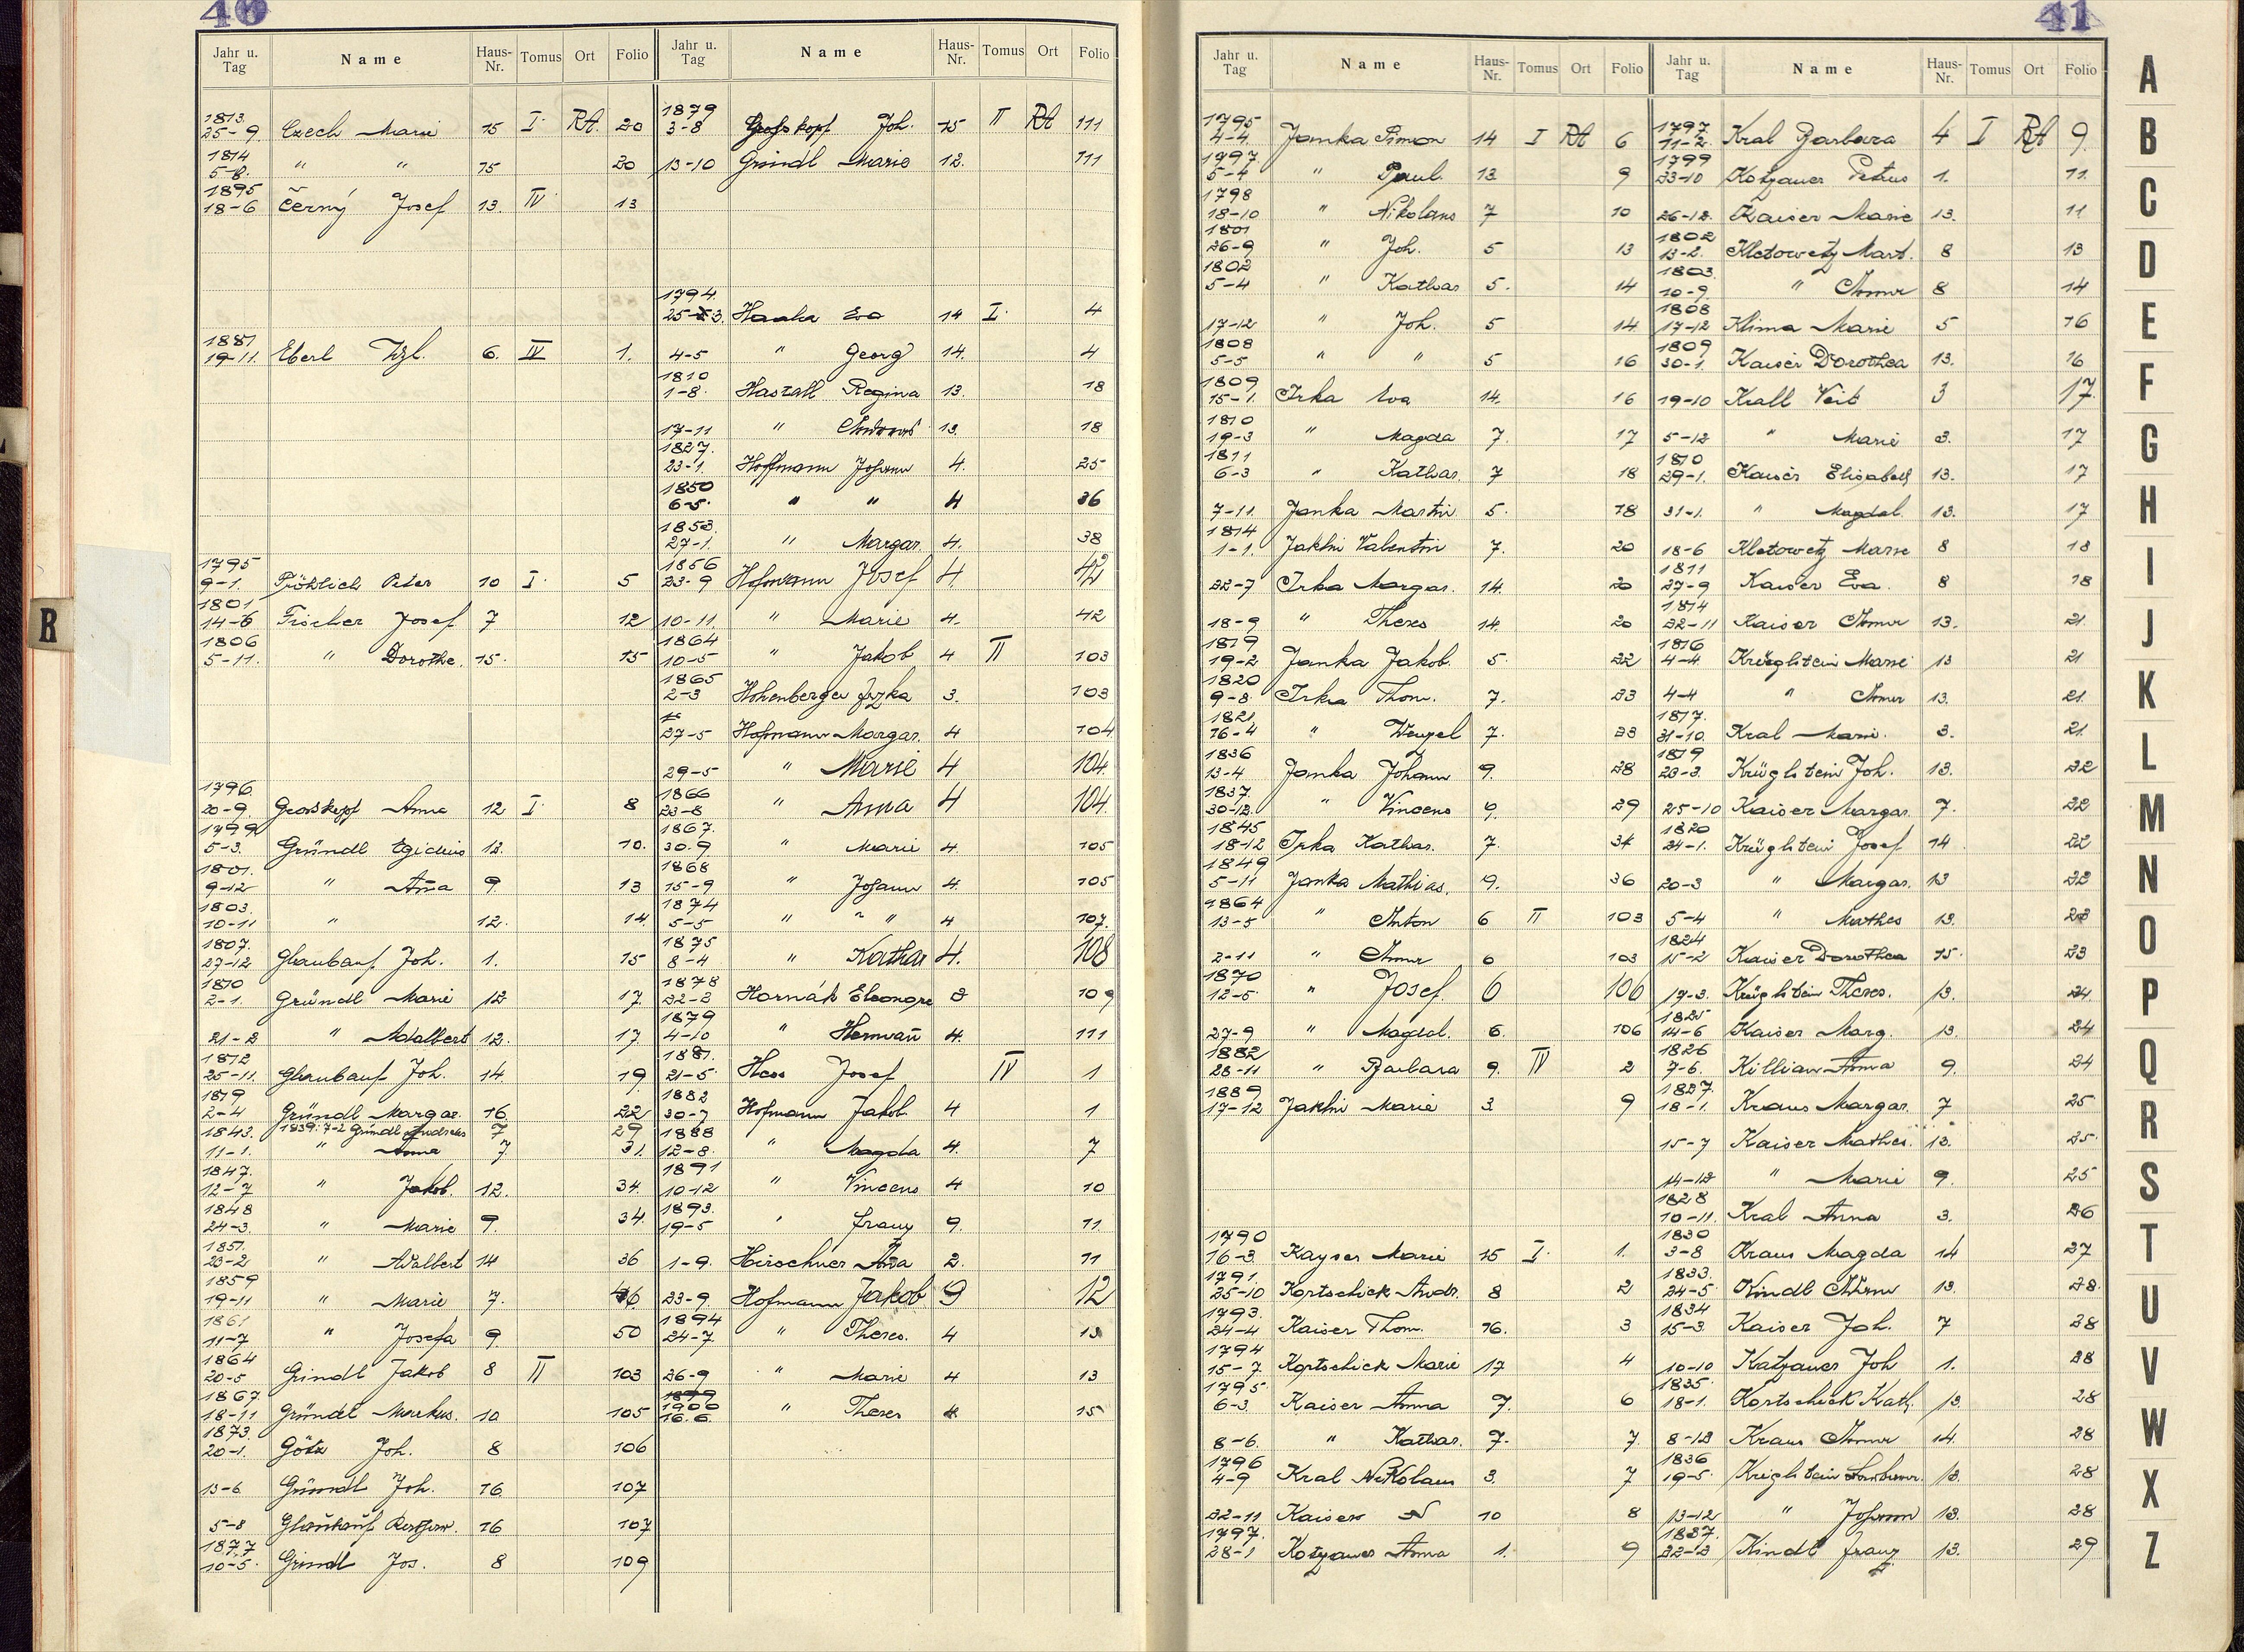 40
Jahr u. Tag Name Haus-Nr. Tomus Ort Folio
1813. 25-9. Czech Marie 15 I. Rt. 20
1814 5-8. " " 15 20
1895 18-6 Černý Josef 13. IV 13
1881 19-11. Eberl 6. IV 1.
1795 9-1. Fröhlich Peter 10 I. 5
1801 14-6 Fischer Josef 7 12
1806 5-11. " Dorothe. 15. 15
1796 20-9. Grosskopf Anna 12 I. 8
1799 5-3. Gründl Egidius 12. 10.
1801. 9-12 " Anna 9. 13
1803. 10-11 " 12. 14.
1807. 27-12 Glaubauf Joh. 1. 15
1810 2-1. Gründl Marie 12 17.
21-2 " Adalbert 12. 17.
1812 25-11. Glaubauf Joh. 14. 19.
1819 2-4 Gründl Margar. 16. 22
1839: 7-2 Gründl Andreas 7 29
1843. 11-1. " Anna 7. 31.
1847. 12-7 " Jakob. 12. 34.
1848 24-3. " Marie 9. 34.
1851. 23-2 " Adalbert 14 36
1859 19-11 " Marie 7. 46
1861 11-7 " Josefa 9. 50
1864 20-5 Grindl Jakob 8 II 103
1867. 18-11 Gründl Markus. 10 105
1873. 20-1. Götz Joh. 8 106
13-6 Gründl Joh. 16. 107
5-8 Glaubauf 16 107
1877 10-5. Grindl Jos. 8 109
Jahr u. Tag Name Haus-Nr. Tomus Ort Folio
1879 3-8 Grosskopf Joh. 15 II Rt 111
13-10 Gründl Marie 12. 111
1794. 25-3. Haala Eva 14 I. 4
4-5 " Georg 14. 4
1810 1-8. Hastall Regina 13. 18
17-11 " Andreas 13. 18
1827. 23-1. Hoffmann Johann 4. 25
1850 6-5. " " 4 36
1853. 27-1. " Margar. 4. 38
1856 23-9 Hofmann Josef 4. 42
10-11. " Marie 4. 42
1864 10-5 " Jakob 4 II 103
1865 2-3 Hohenberger 3. 103
27-5 Hofmann Margar. 4 104
29-5 " Marie 4 104.
1866 23-8 " Anna 4 104.
1867. 30.9 " Marie 4. 105
1868 15-9 " Johann 4. 105
1874 5-5 " " 4 107.
1875 8-4 " Kathar 4. 108
1878 22-2 Hornák Eleonore 109
1879 4-10 " Hermañ 4. 111
1881. 21-5. Hess Josef IV 1
1882 30-7 Hofmann Jakob 4 1
1888 12-8. " Magda 4. 7
1891 10-12 " Vincens 4 10
1893. 19-5 " Franz 9. 11.
1-9. Hirschner Aña 2. 11
23-9. Hofmann Jakob 9 12
1894 24-7. " Theres. 4 13
26-9 " Marie 4 13
1899 1900 16.6. " Theres 4 15
41
Jahr u. Tag Name Haus-Nr. Tomus Ort Folio
1795 4-4. Janka Simon 14 I Rt 6
1797. 5-4 " Paul. 13. 9
1798 18-10 " Nikolaus 7 10
1801 26-9 " Joh. 5 13
1802 5-4 " Kathar 5. 14
17-12 " Joh. 5 14.
1808 5-5 " " 5 16
1809 15-1. Irka Eva 14. 16
1810 19-3 " Magda 7. 17
1811 6-3 " Kathar. 7 18
7-11. Janka Martin 5. 18
1814 1-1. Jaklin Valentin 7. 20
22-7 Irka Margar. 14. 20
18-9 " Theres 14. 20
1819 19-2. Janka Jakob. 5. 22
1820 9-8. Irka Thom. 7. 23
1821. 16-4 " Wenzel 7. 23
1836 13-4 Janka Johann 9. 28
1837. 30-12. " Vincens 9. 29
1845 18-12 Irka Kathar. 7. 34
1849 5-11 Janka Mathias. 9. 36
1864 13-5 " Anton 6 II 103
2-11 " Anna 6 103
1870 12-5. " Josef. 6 106
27-9 " Magdal. 6. 106
1882 28-11 " Barbara 9. IV 2
1889 17-12 Jaklin Marie 3. 9
1790 16-3. Kayser Marie 15 I. 1.
1791. 25-10 Kortschick Andr. 8 2
1793. 24-4 Kaiser Thom. 16. 3
1794 15-7 Kortschick Marie 17 4
1795. 6-3. Kaiser Anna 7. 6
8-6. " Kathar. 7. 7.
1796 4-9 Kral Nikolaus 3. 7
22-11 Kaiser N 10 8
1797. 28-1 Kotzauer Anna 1. 9
Jahr u. Tag Name Haus-Nr. Tomus Ort Folio
1797. 11-2. Kral Barbara 4 I Rt 9.
1799 23-10 Kotzauer Petrus 1. 11.
26-12. Kaiser Marie 13. 11
1802 13-2. Kletowetz Mart. 8 13
1803. 10-9. " Anna 8 14
1808 17-12 Klima Marie 5 16
1809 30-1. Kaiser Dorothea 13. 16
19-10 Krall Veit 3 17.
5-12 " Marie 3. 17
1810 29-1. Kaiser Elisabeth 13. 17
31-1. " Magdal. 13. 17
18-6 Kletowetz Marie 8 18
1811 27-9 Kaiser Eva. 8 18
1814 22-11 Kaiser Anna 13. 21.
1816 4-4. Krüglstein Marie 13 21
4-4 " Anna 13. 21.
1817. 31-10. Kral Marie. 3. 21.
1819 23-3. Krüglstein Joh. 13. 22
25-10 Kaiser Margar. 7. 22
1820 24-1. Krüglstein Josef 14 22
20-3 " Margar. 13 22
5-4 " Mathes 13. 23
1824 15-2 Kaiser Dorothea 15. 23
17-3. Krüglstein Theres. 13. 24
1825 14-6 Kaiser Marg. 13. 24
1826 7-6. Killian Anna 9. 24
1827. 18-1. Kraus Margar. 7 25
15-7 Kaiser Mathes. 13. 25.
14-12 " Marie 9. 25
1828 10-11. Kral Anna 3. 26
1830 3-8 Kraus Magda 14 27
1833. 24-5. Kindl 13. 28.
1834 15-3. Kaiser Joh. 7 28
10-10 Katzauer Joh 1. 28
1835. 18-1. Kortschick Kath. 13. 28
8-12 Kraus Anna 14. 28
1836 19-5. Kriglstein 13. 28
13-12 " Johann 13. 28
1837. 22-12 Kindl Franz 13. 29
A
B
C
D
E
F
G
H
I
J
K
L
M
N
O
P
Q
R
S
T
U
V
W
X
Z
R